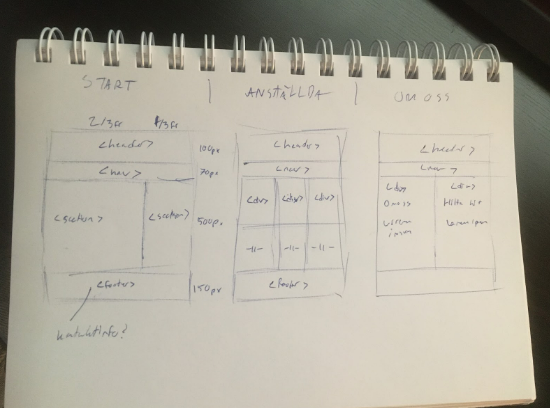 START | ANSTÄLLDA | OM OSS
2/3fr 1/3fr
<header> 100px
<nav> 70px
<section> <section> 500px
<footer> 150px
kontaktinfo?
<header>
<nav>
<div> <div> <div>
-||- -||- -||-
<footer>
<header>
<nav>
<div> <div>
Om oss Hitta hit
Lorem Lorem ipsum
ipsum